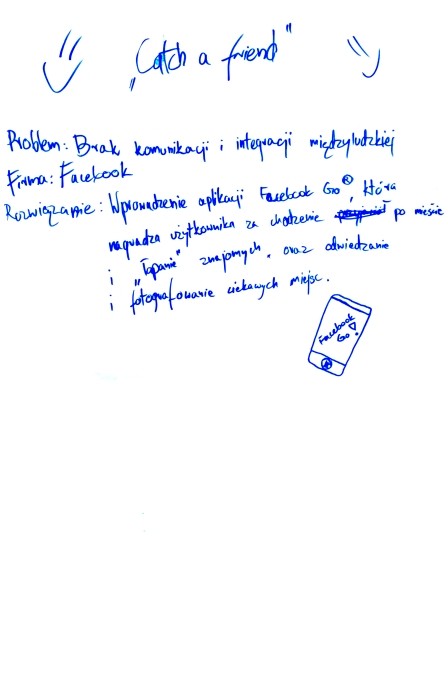 „Catch a friend"
Problem: Brak komunikacji i integracji międzyludzkiej
Firma: Facebook
Rozwiązanie: Wprowadzenie aplikacji Facebook Go®, która
nagradza użytkownika za chodzenie po mieście
i „łapanie" znajomych, oraz odwiedzanie
i fotografowanie ciekawych miejsc.
Facebook
Go!